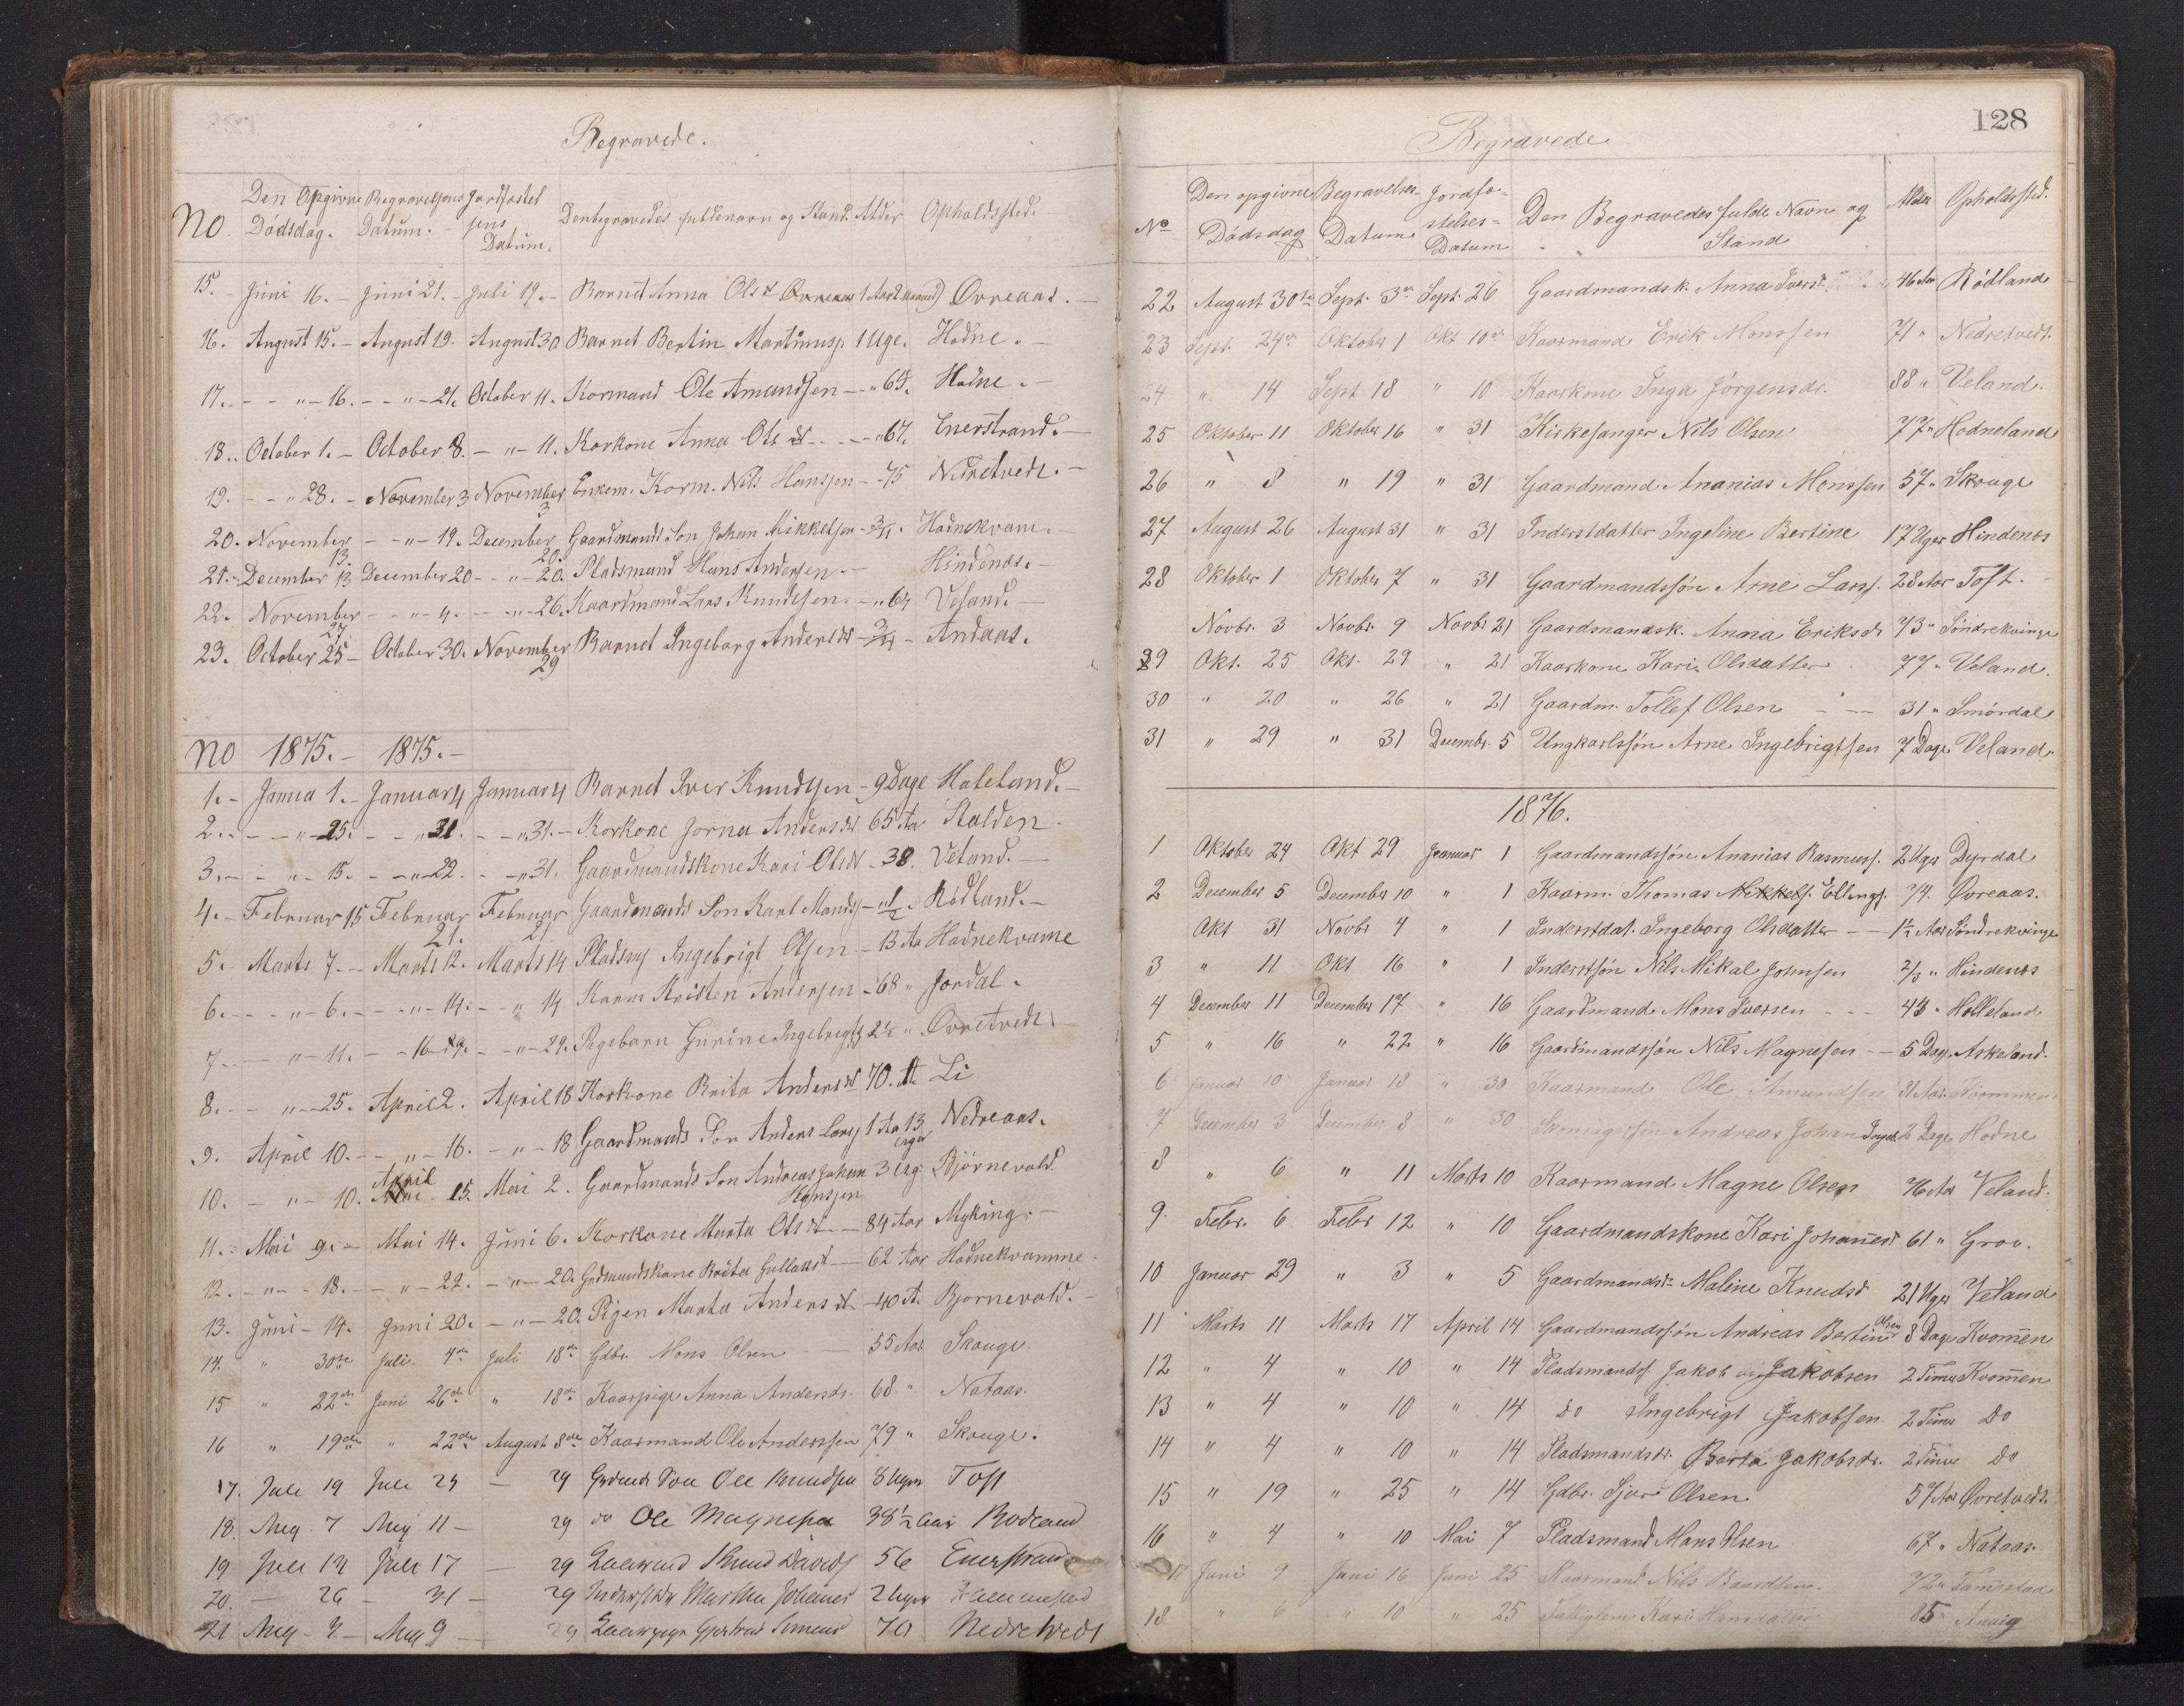 Begravede.
No. Den Opgivne Dödsdag. Begravelsens Datum. Jordfæstelsens Datum. Den begravedes fuldenavn og Stand. Alder Opholdssted.
15. Juni 16. Juni 21. Juli 19. Barnet Anna Olsd Øvreaas 1 Aar 2 Maaned Øvreaas.
16. August 15. August 19. August 30 Barnet Bertin Martinus. 1 Uge. Hodne.
17. " 16. " 21. October 11. Kormand Ole Amundsen " 64. Hodne.
18. October 1. October 8. " 11. Korkone Anna Ols dt " 67. Enerstrand.
19. " 28. November 3 November 3 Enkem. Korm. Nils Hanssen 75 Nedretvedt.
20. November 13. " 19. December 20. Gaardmands Son Johan Mikkelsen Hodnekvam.
21. December 13 December 20 " 20. Pladsmand Hans Andersen. Hindenes.
22. November 27. " 4. " 26. Kaardmand Lars Knudsen. " 64 Veland.
23. October 25 October 30. November 29 Barnet Ingeborg Anders dt Andaas.
No 1875. 1875.
1. Janua 1. Januar 4 Januar 4 Barnet Iver Knudsen 9 Dage Hateland.
2. " 25. " 31. " 31. Korkone Jorna Anders dt 65 Aa Stalden
3. " 15. " 22. " 31. Gaardmandskone Kari Olsdt 38. Veland.
4. Februar 15 Februar 21. Februar 21 Gaardmands Son Karl Monds " 1/2 Rödland.
5. Marts 7. Marts 12. Marts 14 Pladsmf Ingebrigt Olsen 13 Aa Hodnekvame
6. " 6. " 14. " 14 Karm Kristen Andersen 68 " Jordal.
7. " 11. " 29. Pigebarn Gurine Ingebrigts 2 1/2 " Øvretvedt
8. " 25. April 2. April 18 Korkone Brita Anders dt 70. Aa Li
9. April 10. " 16. " 18 Gaardmands Son Anders Larsf 1 Aa 13 Uger Nedreaas.
10. " 10. April 15. Mai 2. Gaardmands Son Andreas Johan Hanssen 3 Ug. Bjørnevold.
11. Mai 9. Mai 14. Juni 6. Korkone Marta Ols dt 84 Aar Myking.
12. " 18. " 22. " 20. Grdmandskone Brita Gullaksdt 62 Aar Hodnekvamme
13. Juni 14. Juni 20. " 20. Pigen Marta Anders dt 40 A. Bjornevold.
14. " 30te Juli 4de Juli 18de Gdbr. Mons Olsen 55 Aar Skauge.
15 " 22de Juni 26de " 18de Kaarpige Anna Andersdr. 68 " Nataas.
16 " 19de " 22de August 8de Kaarmand Ole Anderssen 79 " Skauge.
17. Juli 19 Juli 24 29 Grdmds Son Ole Knudsen 8 Uger Toft
18. Aug 7 Aug 11 29 do Ole Magnesen 38 1/2 Aar Rodland
19 Juli 12 Juli 17 29 Kaarmand Knud Davids 56 Enerstrand
20. 26 31 29 Martha Johannes 2 Uger
21 Aug 2 Aug 9 29 Gjertrud Simens 70 Nedretvedt
128
Begravede
No Den opgivne Dödsdag Begravelses Datum Jordfæstelses Datum Den Begravedes fulde Navn og Stand Alder Opholdssted.
22 August 30te Sept. 3de Sept. 26 Gaardmandsk. Anna Iversd. 46 Aar Rödland
23 Sept. 24de Oktober 1 Okt 10de Kaarmand Erik Monssen 71 " Nedretvedt.
24 " 14 Sept 18 " 10 Kaarkone Inga Jörgensdr. 88 " Veland.
25 Oktober 11 Oktober 16 " 31 Kirkesanger Nils Olsen 77 " Hodneland
26 " 8 " 19 " 31 Gaardmand Ananias Monssen 57 " Skouge
27 August 26 August 31 " 31 Inderstdatter Ingeline Bertine 17 Uger Hindenes
28 Oktober 1 Oktober 7 " 31 Gaardmandssøn Arne Larss. 28 Aar Toft.
Novbr. 3 Novbr. 9 Novbr 21 Gaardmandsk. Anna Eriksdr 73 " Söndrekvinge
29 Okt. 25 Okt. 29 " 21 Kaarkone Kari Olsdatter 77 " Veland.
30 " 20 " 26 " 21 Gaardm. Tollef Olsen 31 " Smördal
31 " 29 " 31 Decembr. 5 Ungkarlssøn Arne Ingebrigtsen 7 Dage Veland.
1876.
1 Oktober 24 Okt 29 Januar 1 Gaardmandssøn Ananias Rasmuss. 2 Uger Dyrdal
2 December 5 December 10 " 1 Kaarm. Thomas Mikkels. Ellings. 74. Øvreaas.
Okt 31 Novbr 4 " 1 Inderstdat. Ingeborg Olsdatter 1 1/2 Aar Söndrekvinge
3 " 11 Okt 16 " 1 Inderstsøn Nils Mikal Johnsen 2/3 " Hindenes
4 December 11 December 17 " 16 Gaardmand Mons Iversen 43 " Helleland
5 " 16 " 22 " 16 Gaardmandssøn Nils Magnesen 5 Dage Askeland.
6 Januar 10 Januar 18 " 30 Kaarmand Ole Amundsen 81 Aar Kvommen
7 December 3 December 8 " 30 Skomagersøn Andreas Johan Ingeb 2 Dage Hodne
8 " 6 " 11 Marts 10 Kaarmand Magne Olsen 76 Aar Veland.
9 Febr. 6 Febr 12 " 10 Gaardmandskone Kari Johannesd 61 " Grov.
10 Januar 29 " 3 " 5 Gaardmandsdr Maline Knudsd 21 Uger Veland
11 Marts 11 Marts 17 April 14 Gaardmandssøn Andreas Bertin Olsen 8 Dage Kvomen
12 " 4 " 10 " 14 Pladsmands. Jakob Jakobsen 2 Timer Kvomen
13 " 4 " 10 " 14 do Ingebrigt Jakobsen 2 Timer Do
14 " 4 " 10 " 14 Pladsmandsdr. Berta Jakobsdr. 2 Timer Do
15 " 19 " 25 " 14 Gdbr. Sjur Olsen 57 Aar Øvretvedt.
16 " 4 " 10 Mai 7 Pladsmand Mons Olsen 67 " Nataas.
17 Juni 9 Juni 16 Juni 25 Kaarmand Nils Baardsen. 72 "
18 " 6 " 10 " 25 Fattiglem Kari Hansdatter 85